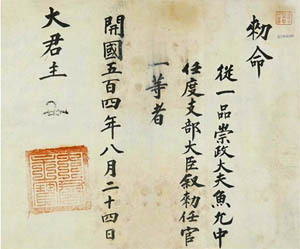 勅命
從一品崇政大夫魚允中
任度支部大臣敍勅任官
一等者
開國五百四年八月二十四日
大君主